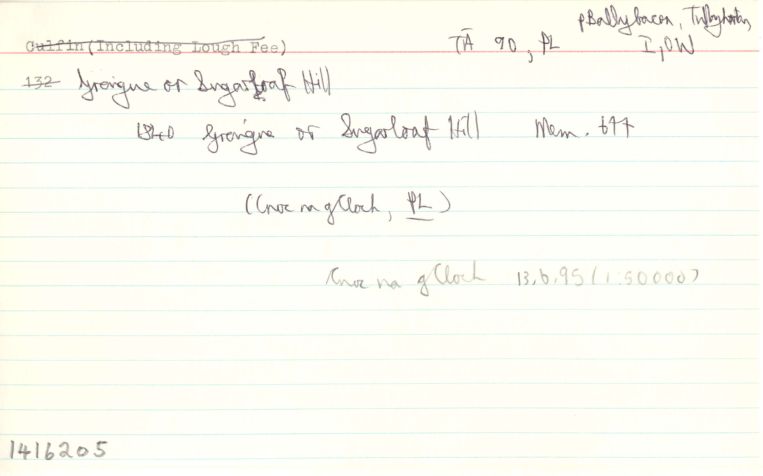 p Ballybacon, Tubbrid,
Culfin(Including Lough Fee) TÁ 90, PL I, OW
132 Groigne or Sugarloaf Hill
1840 Groigne or Sugarloaf Hill Mem.
(Cnoc na gCloch, PL)
Cnoc na gCloch 13.6.95 (1:50000)
1416205